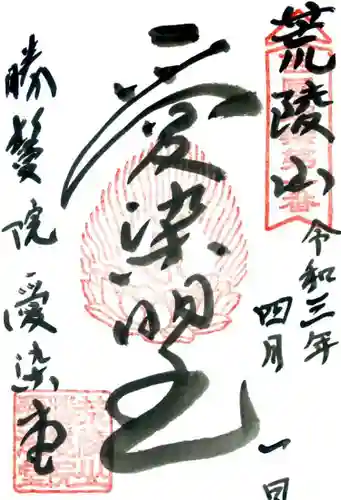 荒陵山
令和三年
四月一日
愛染明王
勝鬘院愛染堂